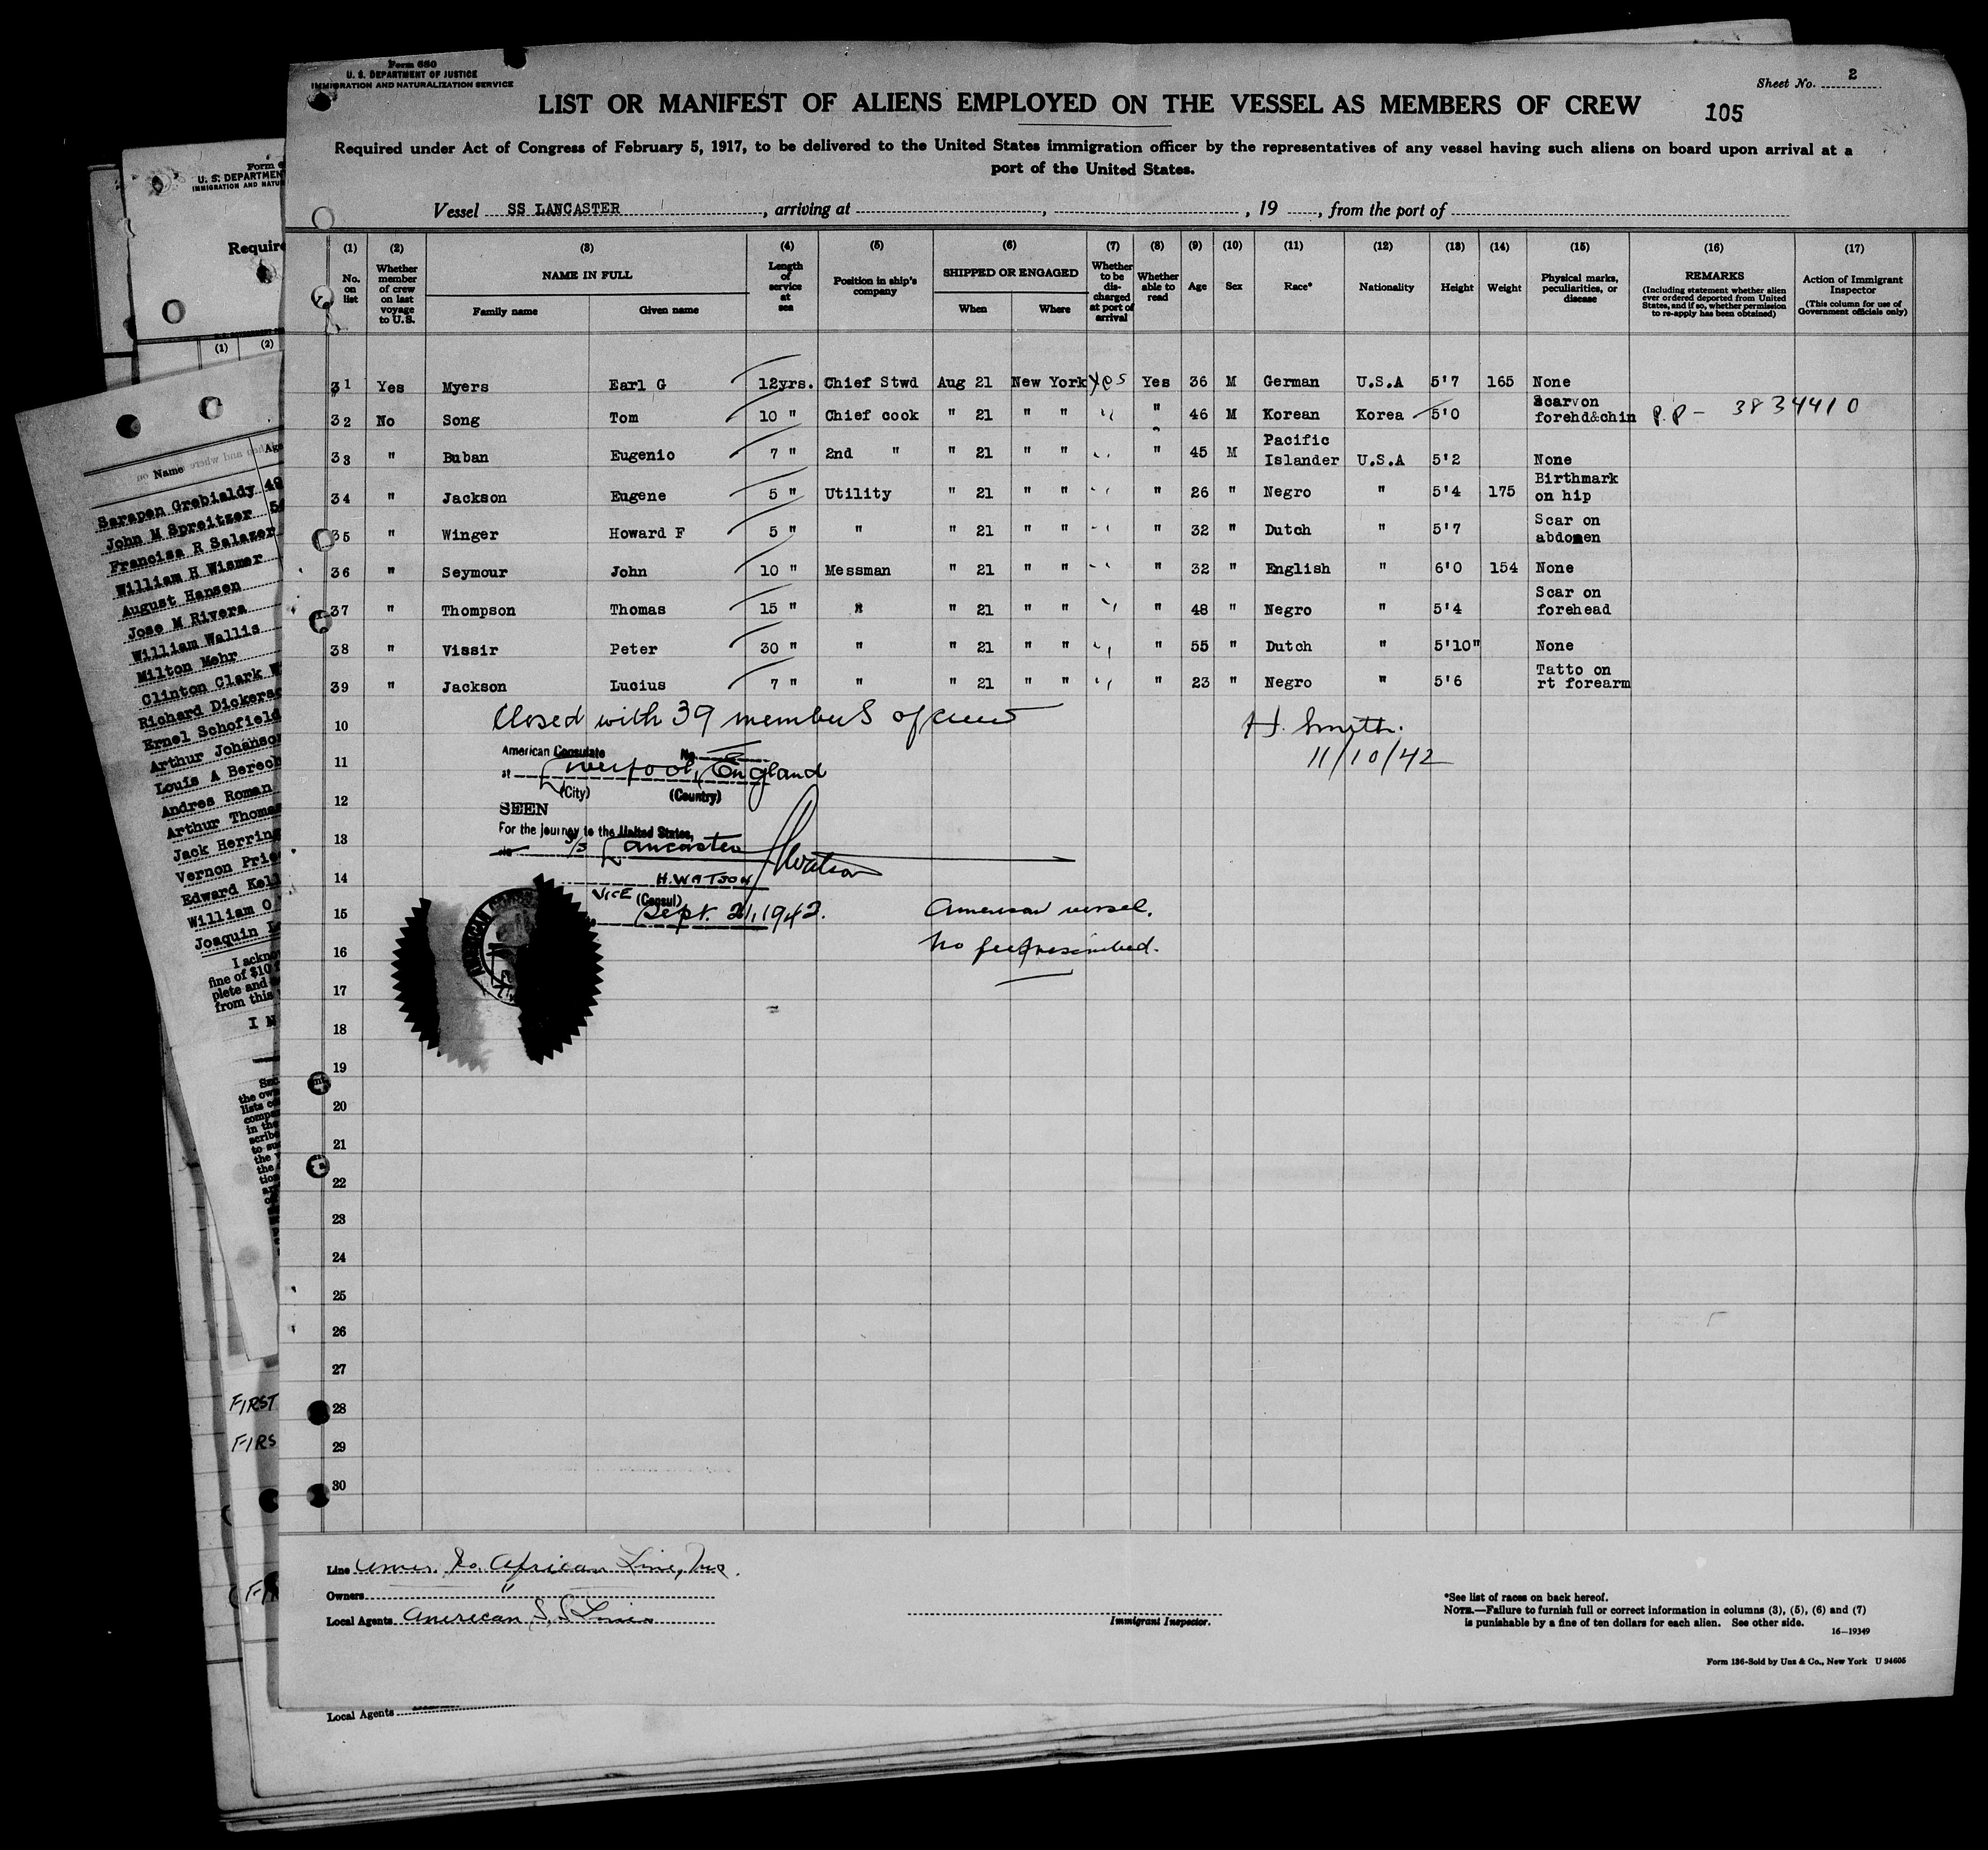 Form 680
U. S. DEPARTMENT OF JUSTICE
IMMIGRATION AND NATURALIZATION SERVICE
Sheet No. 2
LIST OR MANIFEST OF ALIENS EMPLOYED ON THE VESSEL AS MEMBERS OF CREW
105
Required under Act of Congress of February 5, 1917, to be delivered to the United States immigration officer by the representatives of any vessel having such aliens on board upon arrival at a
port of the United States.
Vessel SS LANCASTER, arriving at , , 19 , from the port of
(1) (2) (3) (4) (5) (6) (7) (8) (9) (10) (11) (12) (13) (14) (15) (16) (17)
No. on list
Whether member of crew on last voyage to U.S.
NAME IN FULL
Family name
Given name
Length of service at sea
Position in ship's company
SHIPPED OR ENGAGED
When
Where
Whether to be discharged at port of arrival
Whether able to read
Age
Sex
Race*
Nationality
Height
Weight
Physical marks, peculiarities, or disease
REMARKS
(Including statement whether alien ever ordered deported from United States, and if so, whether permission to re-apply has been obtained)
Action of Immigrant Inspector
(This column for use of Government officials only)
31 Yes Myers Earl G 12yrs. Chief Stwd Aug 21 New York Yes Yes 36 M German U.S.A 5'7 165 None
32 No Song Tom 10 " Chief cook " 21 " " " " 46 M Korean Korea 5'0 Scar on forehd&chin P.P- 3834410
33 " Buban Eugenio 7 " 2nd " " 21 " " " " 45 M Pacific Islander U.S.A 5'2 None
34 " Jackson Eugene 5 " Utility " 21 " " " " 26 " Negro " 5'4 175 Birthmark on hip
35 " Winger Howard F 5 " " " 21 " " " " 32 " Dutch " 5'7 Scar on abdomen
36 " Seymour John 10 " Messman " 21 " " " " 32 " English " 6'0 154 None
37 " Thompson Thomas 15 " " " 21 " " " " 48 " Negro " 5'4 Scar on forehead
38 " Vissir Peter 30 " " " 21 " " " " 55 " Dutch " 5'10" None
39 " Jackson Lucius 7 " " " 21 " " " " 23 " Negro " 5'6 Tatto on rt forearm
10 Closed with 39 members of crew H. Smith.
11/10/42
American Consulate No.
11 at Liverpool, England
(City) (Country)
12
SEEN
For the journey to the United States,
13 S/S Lancaster HWatson
14 H. WATSON
VICE (Consul)
15 Sept. 21, 1942. American vessel.
16 No fee prescribed.
17
18
19
20
21
22
23
24
25
26
27
28
29
30
Line Amer. So. African Line, Inc.
Owners "
Local Agents American S. S. Lines
Immigrant Inspector.
*See list of races on back hereof.
NOTE.—Failure to furnish full or correct information in columns (3), (5), (6) and (7)
is punishable by a fine of ten dollars for each alien. See other side.
16—19349
Form 136-Sold by Unz & Co., New York U 94605
Form
U. S. DEPARTMEN
IMMIGRATION AND NATU
Require
(1) (2)
Name
Sarapen Grebialdy 49
John M Spreitzer
Francisa R Salazer
William H Wismer
August Hansen
Jose M Rivera
William Wallis
Milton Mehr
Clinton Clark W
Richard Dickerso
Ernel Schofield
Arthur Johanson
Louis A Berech
Andres Roman
Arthur Thomas
Jack Herring
Vernon Prie
Edward Kell
William O
Joaquin
I ackno
fine of $10
plete and
from this
I N
the ow
lists
comp
in the
scribe
to su
the
the
tion
FIRST
FIRS
Local Agents